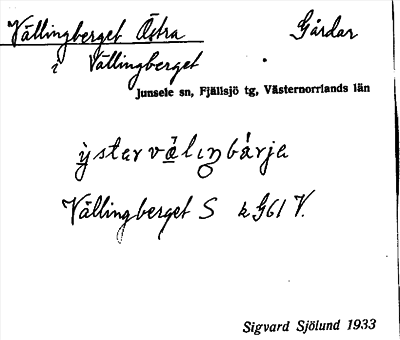 Vällingberget Östra Gårdar
i Vällingberget
Junsele sn, Fjällsjö tg, Västernorrlands län
Vällingberget S k G61 V.
Sigvard Sjölund 1933